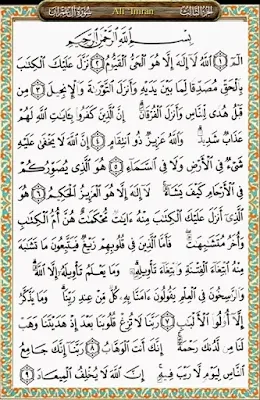 سورة آل عمران Ali 'Imran الجزء الثالث
بسم الله الرحمن الرحيم
الم ١ الله لا إله إلا هو الحي القيوم ٢ نزل عليك الكتب
بالحق مصدقا لما بين يديه وأنزل التورىة والإنجيل ٣ من
قبل هدى للناس وأنزل الفرقان إن الذين كفروا بءايت الله لهم
عذاب شديد والله عزيز ذو انتقام ٤ إن الله لا يخفى عليه
شىء في الأرض ولا في السماء ٥ هو الذي يصوركم
في الأرحام كيف يشاء لا إله إلا هو العزيز الحكيم ٦ هو
الذي أنزل عليك الكتب منه ءايت محكمت هن أم الكتب
وأخر متشبهت فأما الذين في قلوبهم زيغ فيتبعون ما تشبه
منه ابتغاء الفتنة وابتغاء تأويله وما يعلم تأويله إلا الله
والرسخون في العلم يقولون ءامنا به كل من عند ربنا وما يذكر
إلا أولوا الألبب ٧ ربنا لا تزغ قلوبنا بعد إذ هديتنا وهب
لنا من لدنك رحمة إنك أنت الوهاب ٨ ربنا إنك جامع
الناس ليوم لا ريب فيه إن الله لا يخلف الميعاد ٩